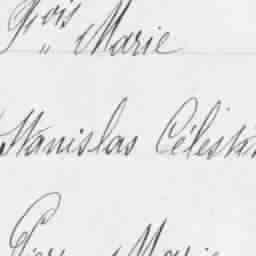 Fçois Marie
Stanislas Célestin
Marie